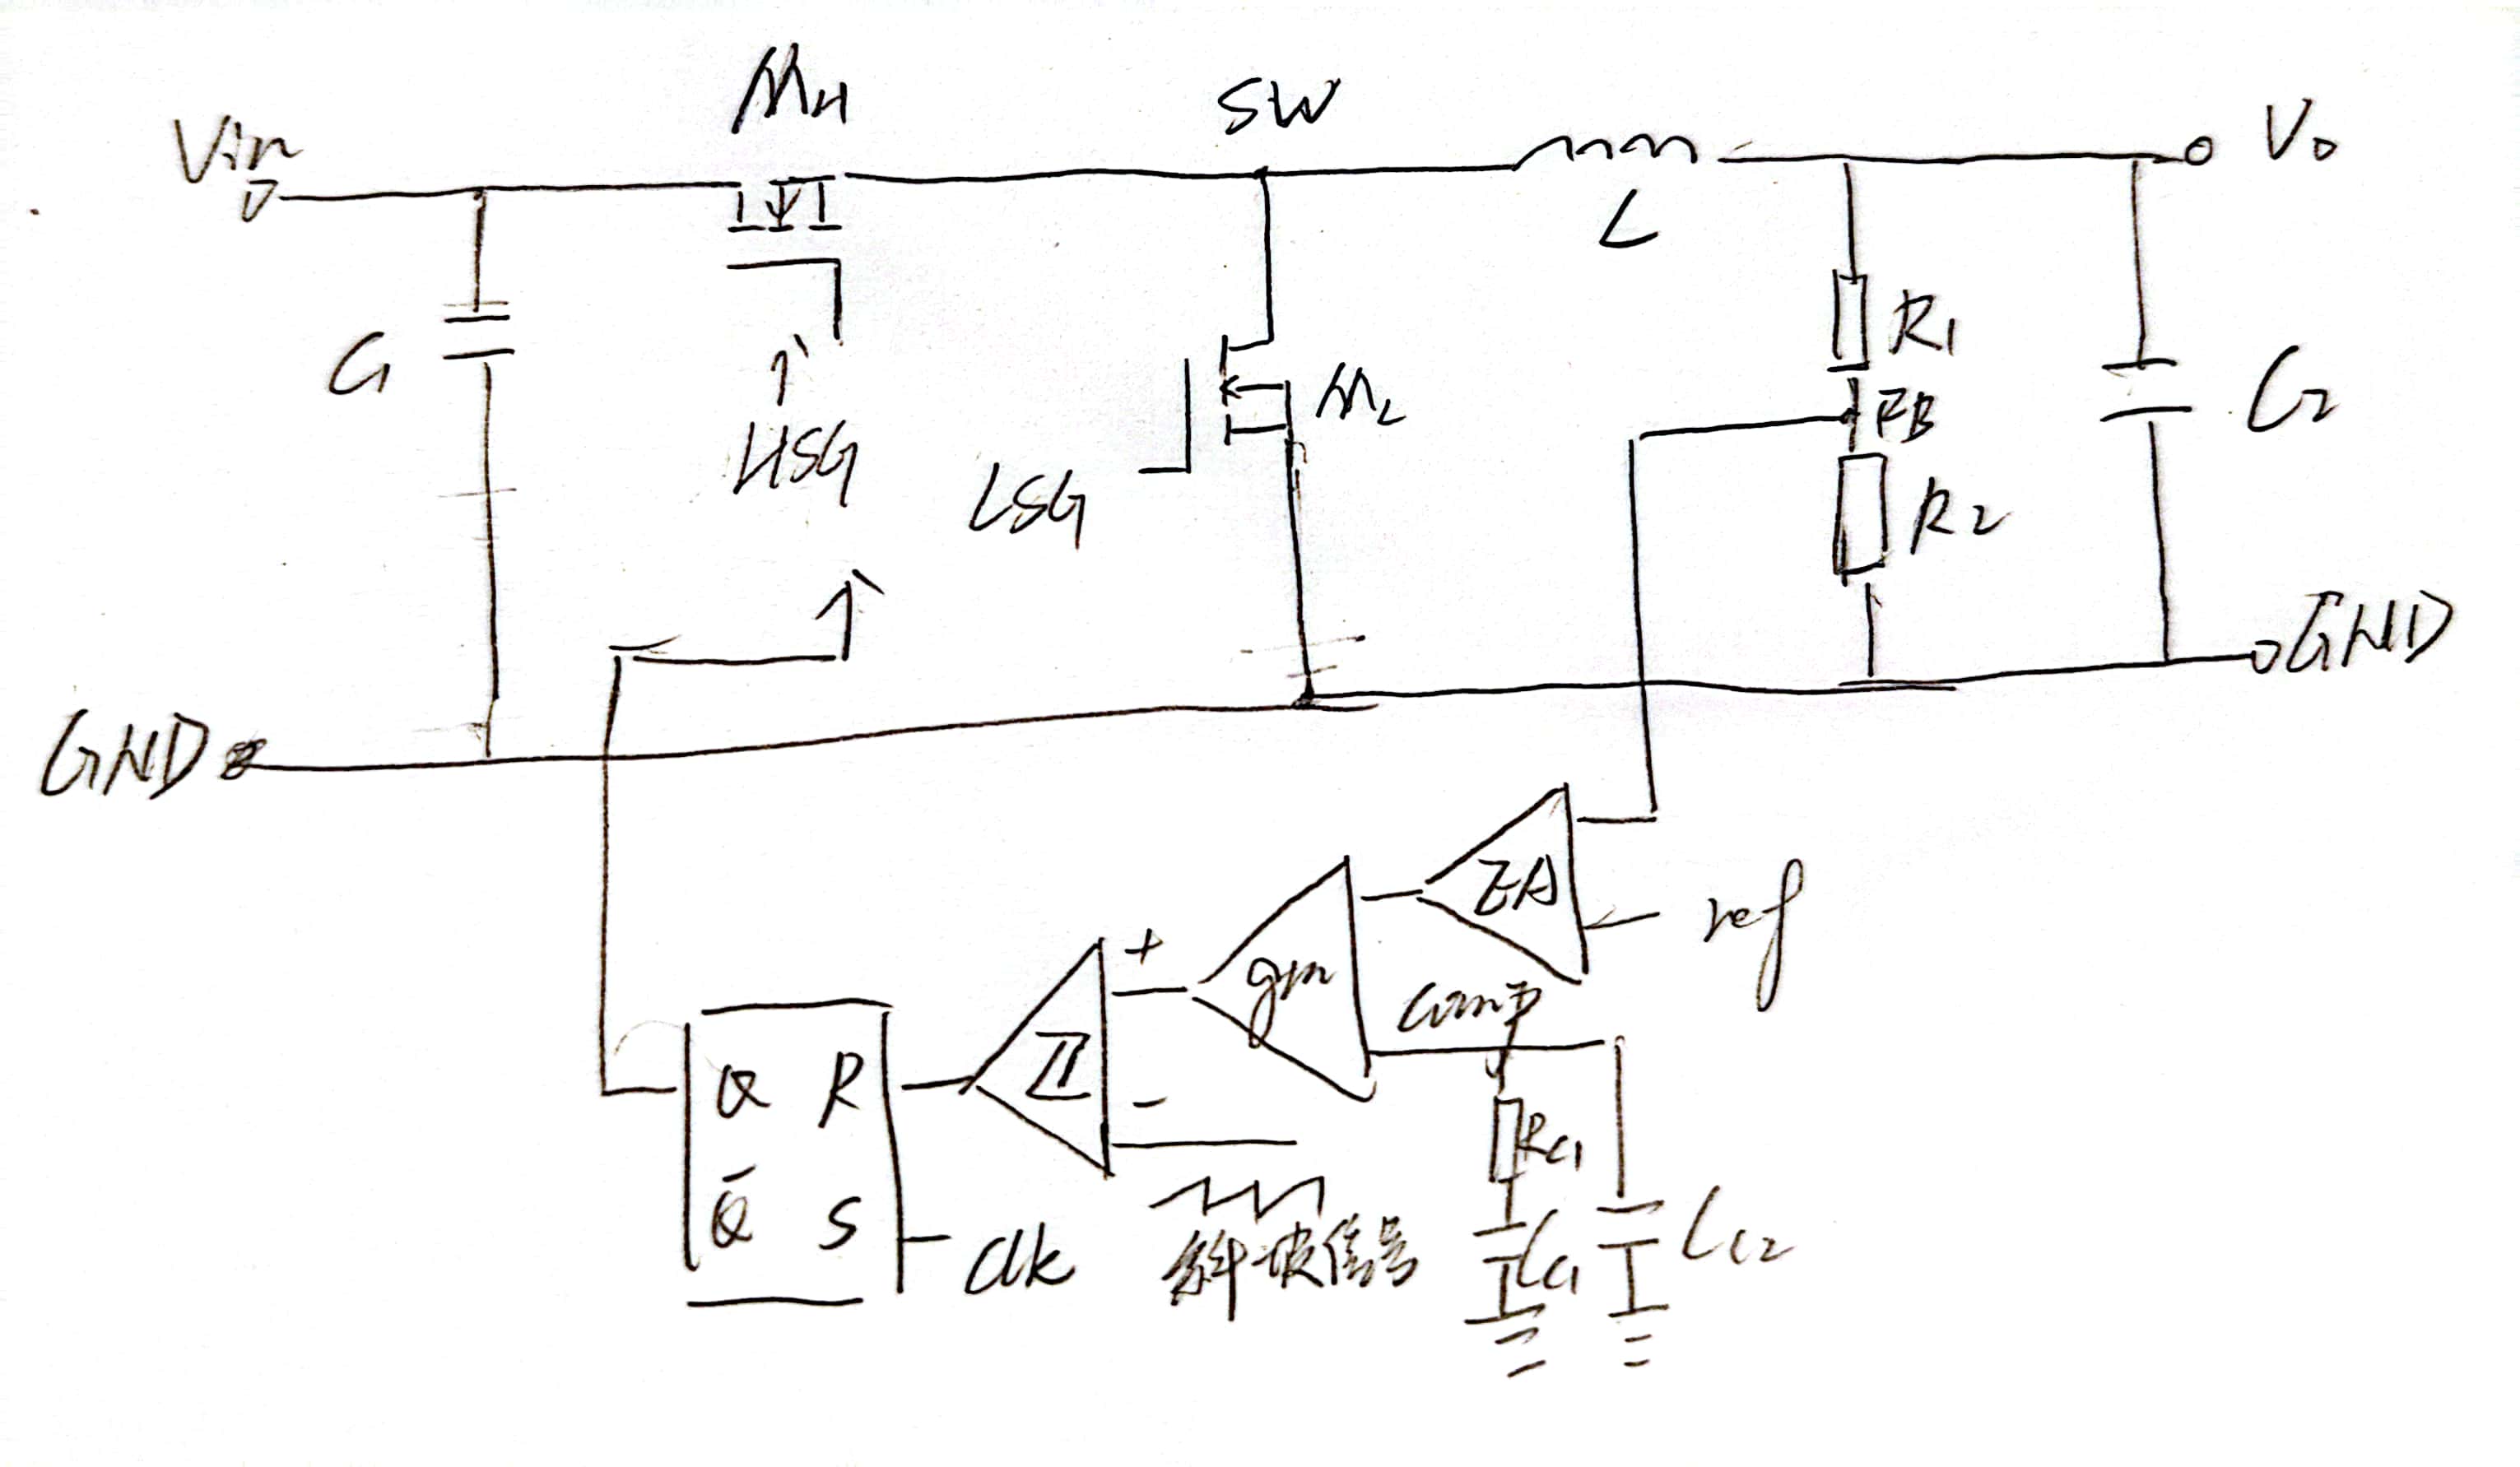 MH
SW
Vin
Vo
L
C1
R1
HSG
ML
FB
C2
LSG
R2
GND
GND
EA
ref
+
gm
comp
Σ
Q R
-
RC1
Q̄ S
clk
斜坡信号
CC1
CC2